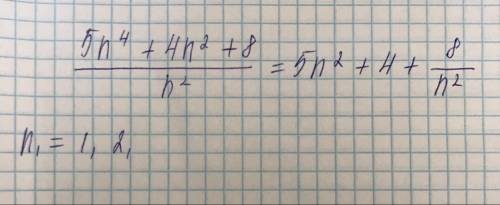 (5n⁴ + 4n² + 8)/n² = 5n² + 4 + 8/n²
n, = 1, 2,